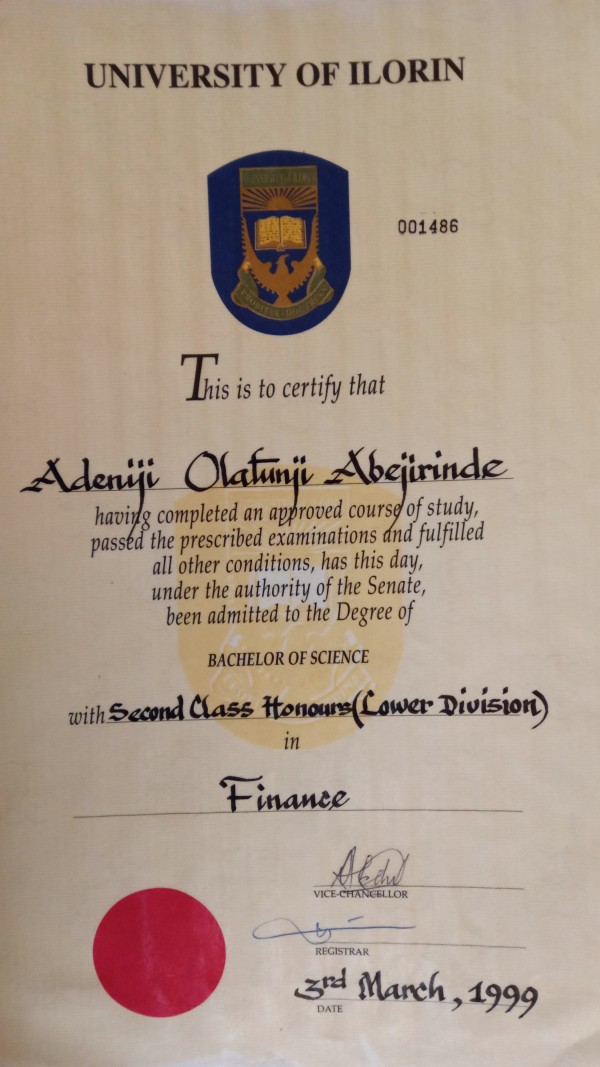 UNIVERSITY OF ILORIN
001486
This is to certify that
Adeniji Olatunji Abejirinde
having completed an approved course of study,
passed the prescribed examinations and fulfilled
all other conditions, has this day,
under the authority of the Senate,
been admitted to the Degree of
BACHELOR OF SCIENCE
with Second Class Honours (Lower Division)
in
Finance
VICE-CHANCELLOR
REGISTRAR
3rd March, 1999
DATE